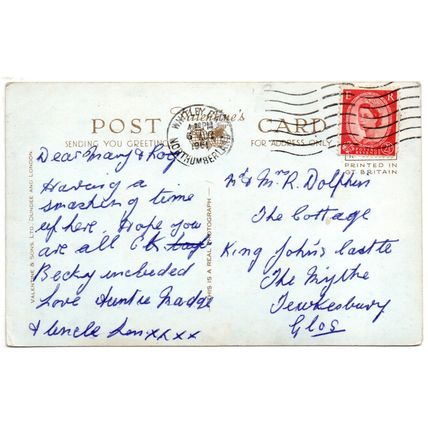 POST Valentine's CARD
SENDING YOU GREETING FOR ADDRESS ONLY
WHITLEY BAY
NORTHUMBERLAND
1961
PRINTED IN
GT BRITAIN
VALENTINE & SONS, LTD., DUNDEE AND LONDON.
THIS IS A REAL PHOTOGRAPH
Dear Mary & Roy
Having a
smashing of time
up here. Hope you
are all O.K.
Becky included
Love Auntie Madge
& Uncle Len xxxx
Mr & Mrs R. Dolphin
The Cottage
King John's Castle
The Mythe
Tewkesbury
Glos